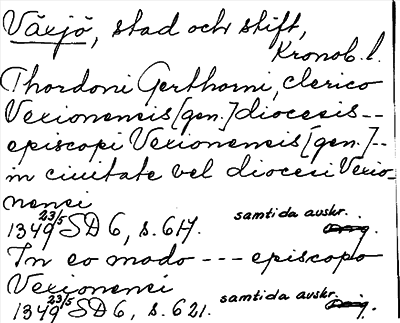 Växjö, stad och stift,
Kronob. l.
Thordoni Gerthorni, clerico
Vexionensis [gen.] diocesis --
episcopi Vexionensis [gen.] --
in ciuitate vel diocesi Vexio-
nenci
1349 23/5 SD 6, s. 617. samtida avskr.
In eo modo --- episcopo
Vexionenci
1349 23/5 SD 6, s. 621. samtida avskr.